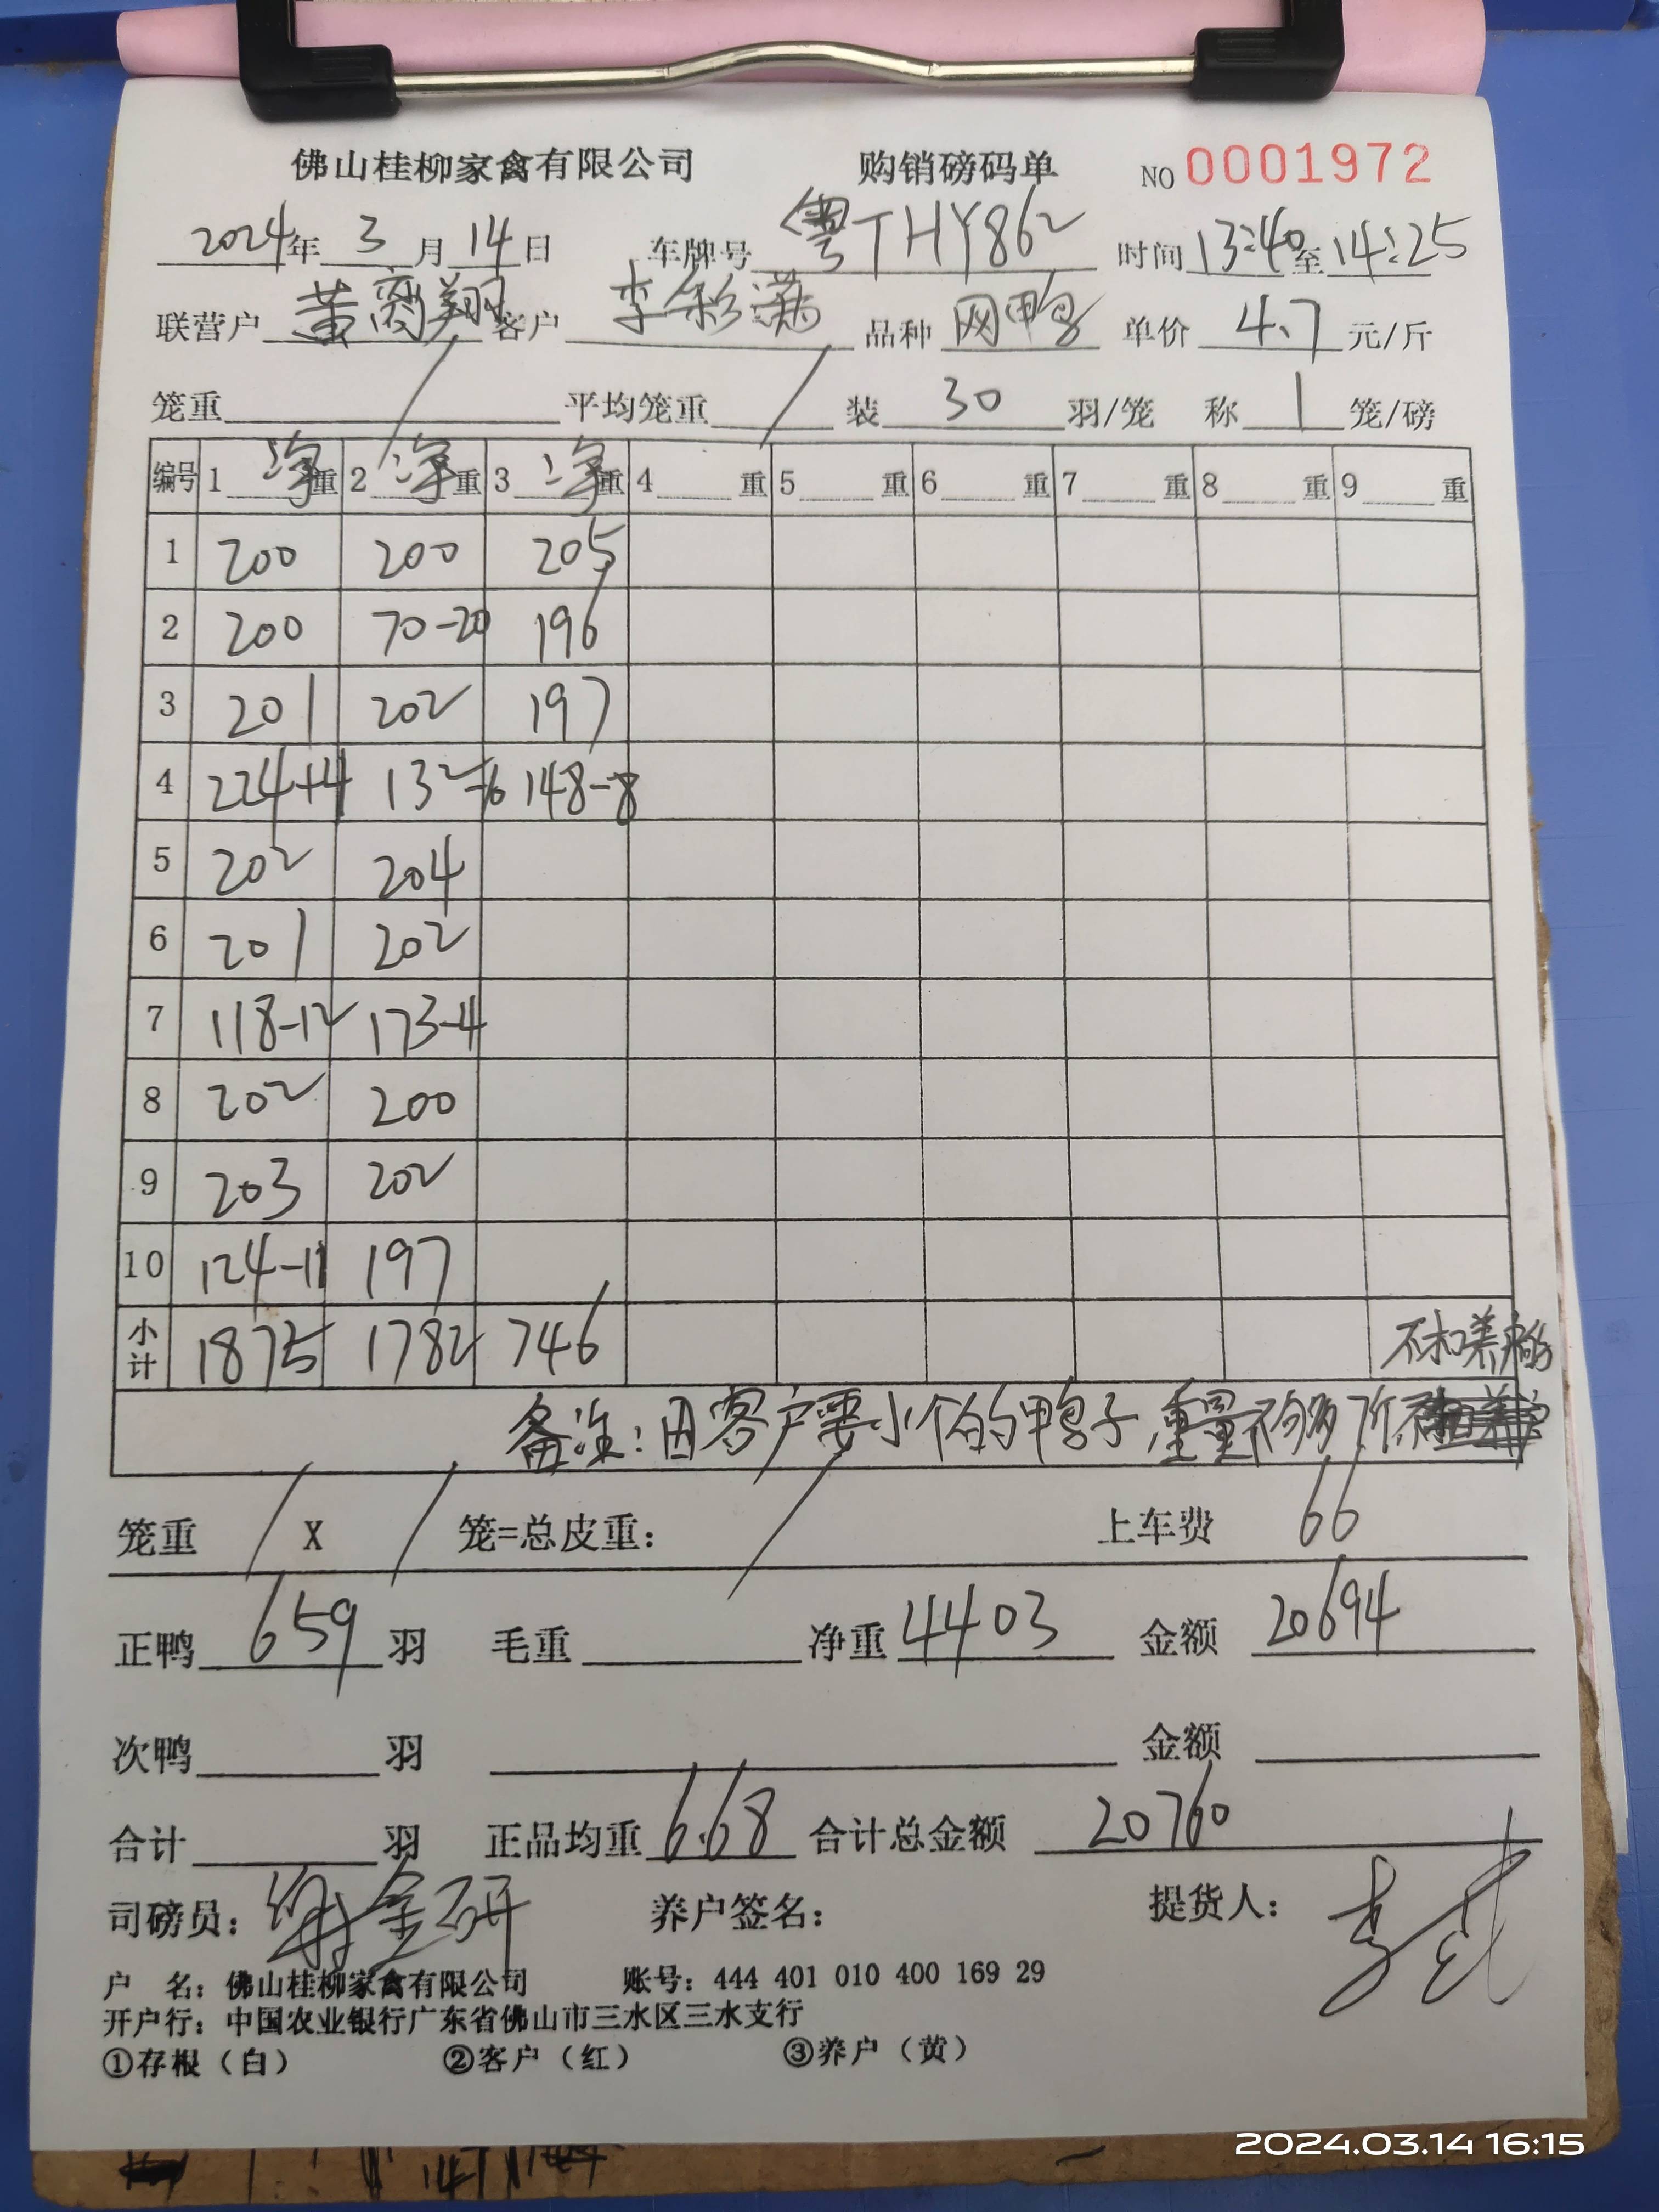 佛山桂柳家禽有限公司 购销磅码单 NO 0001972
2024年 3 月 14 日 车牌号 粤THY862 时间 13:40 至 14:25
联营户 黄 翔 客户 李彩满 品种 网鸭 单价 4.7 元/斤
笼重 / 平均笼重 / 装 30 羽/笼 称 1 笼/磅
编号 1 净重 2 净重 3 净重 4 重 5 重 6 重 7 重 8 重 9 重
1 200 200 205
2 200 70-20 196
3 201 202 197
4 224+4 132-6 148-8
5 202 204
6 201 202
7 118-12 173-4
8 202 200
9 203 202
10 124-11 197
小计 1875 1782 746
不扣养户的
备注:因客户要小个的鸭子,重量不够 所
笼重 / X / 笼=总皮重: / 上车费 66
正鸭 659 羽 毛重 净重 4403 金额 20694
次鸭 羽 金额
合计 羽 正品均重 6.68 合计总金额 20760
司磅员: 金研 养户签名: 提货人: 李
户 名: 佛山桂柳家禽有限公司 账号: 444 401 010 400 169 29
开户行: 中国农业银行广东省佛山市三水区三水支行
①存根（白） ②客户（红） ③养户（黄）
2024.03.14 16:15